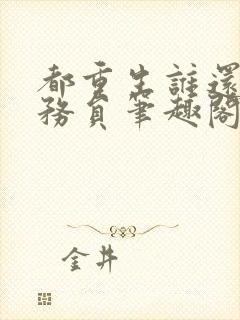 都重生誰還
務員筆趣閣
金井